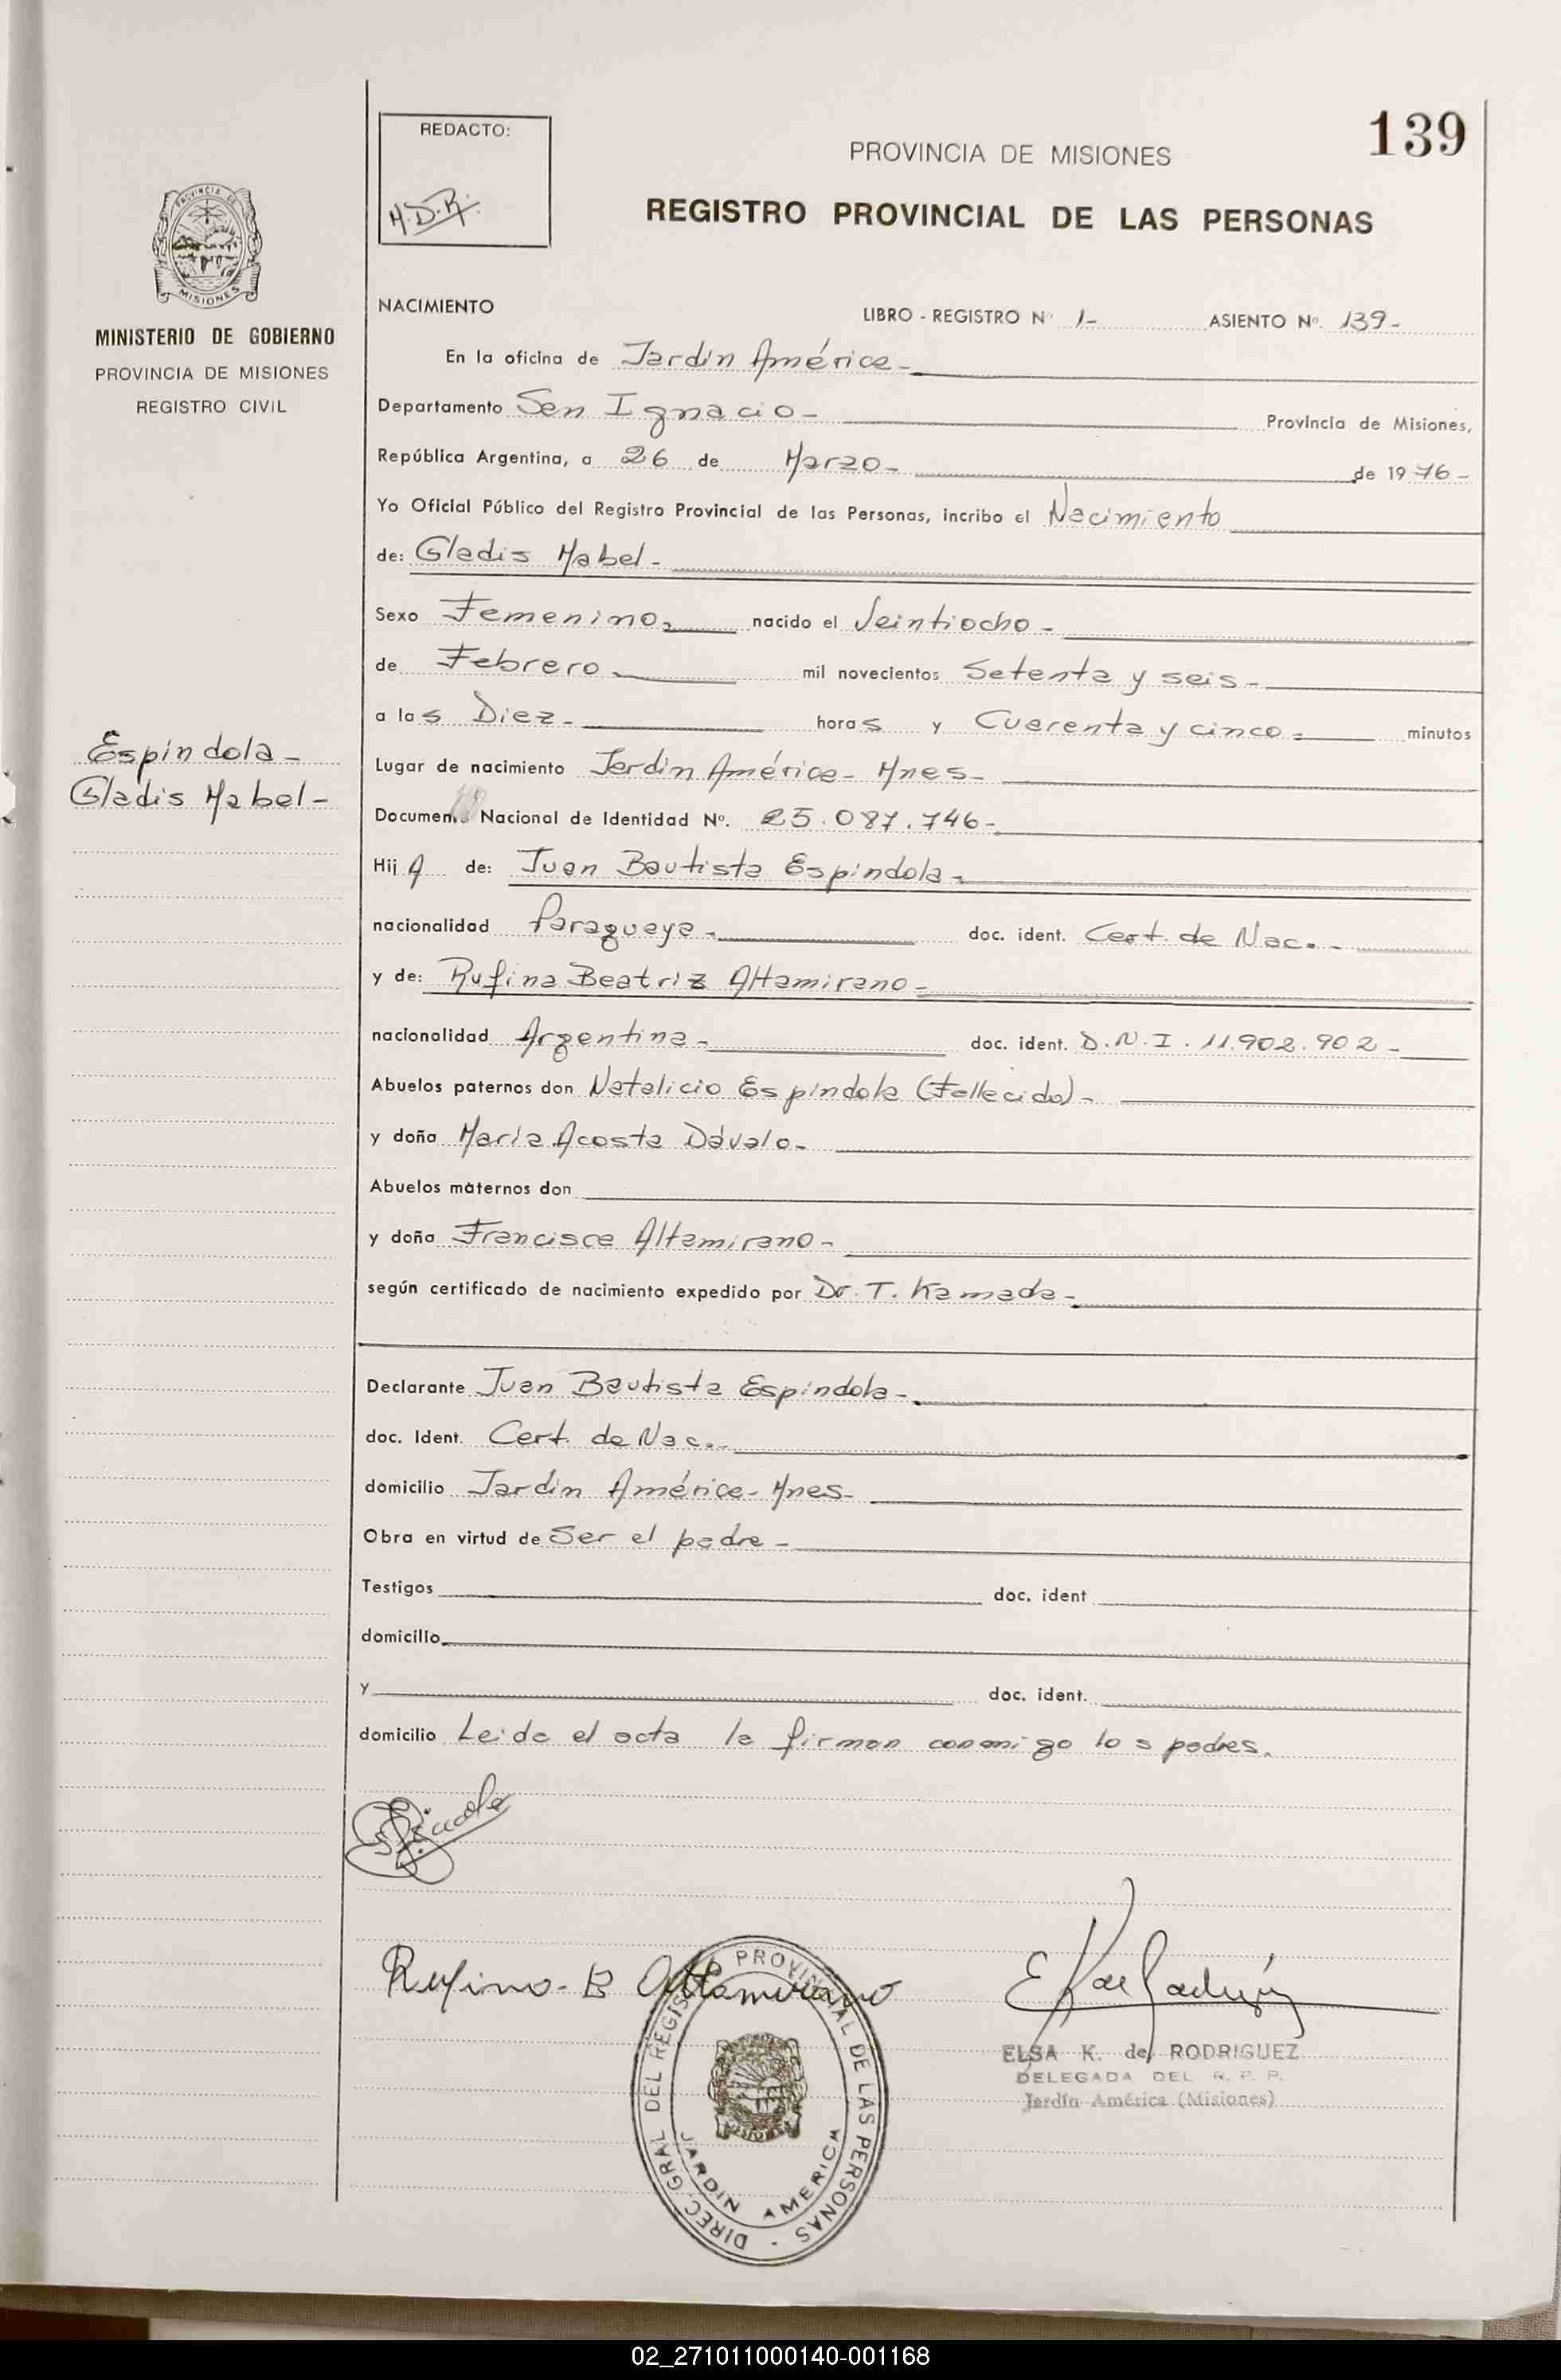 139
REDACTO:
M.D.R.
PROVINCIA DE MISIONES
REGISTRO PROVINCIAL DE LAS PERSONAS
PROVINCIA DE
MISIONES
MINISTERIO DE GOBIERNO
PROVINCIA DE MISIONES
REGISTRO CIVIL
Espíndola-
Gladis Mabel-
NACIMIENTO LIBRO - REGISTRO Nº 1- ASIENTO Nº. 139-
En la oficina de Jardín América-
Departamento San Ignacio- Provincia de Misiones,
República Argentina, a 26 de Marzo- de 1976-
Yo Oficial Público del Registro Provincial de las Personas, incribo el Nacimiento
de: Gladis Mabel-
Sexo Femenino- nacido el Veintiocho-
de Febrero- mil novecientos Setenta y seis-
a las Diez- horas y Cuarenta y cinco- minutos
Lugar de nacimiento Jardín América- Mnes-
Documento Nacional de Identidad Nº. 25.087.746-
Hij A de: Juan Bautista Espíndola-
nacionalidad Paraguaya- doc. ident. Cert. de Nac.-
y de: Rufina Beatriz Altamirano-
nacionalidad Argentina- doc. ident. D.N.I. 11.902.902-
Abuelos paternos don Natalicio Espíndola (Fallecido)-
y doña María Acosta Dávalo-
Abuelos maternos don
y doña Francisca Altamirano-
según certificado de nacimiento expedido por Dr. T. Kamada-
Declarante Juan Bautista Espíndola-
doc. Ident. Cert. de Nac.-
domicilio Jardín América- Mnes-
Obra en virtud de Ser el padre-
Testigos doc. ident
domicilio
y doc. ident.
domicilio Leída el acta la firman conmigo los padres.
Rufina-B Altamirano
DIREC. GRAL DEL REGISTRO PROVINCIAL DE LAS PERSONAS -
JARDIN AMERICA
ELSA K. de RODRIGUEZ
DELEGADA DEL R. P. P.
Jardín América (Misiones)
02_271011000140-001168